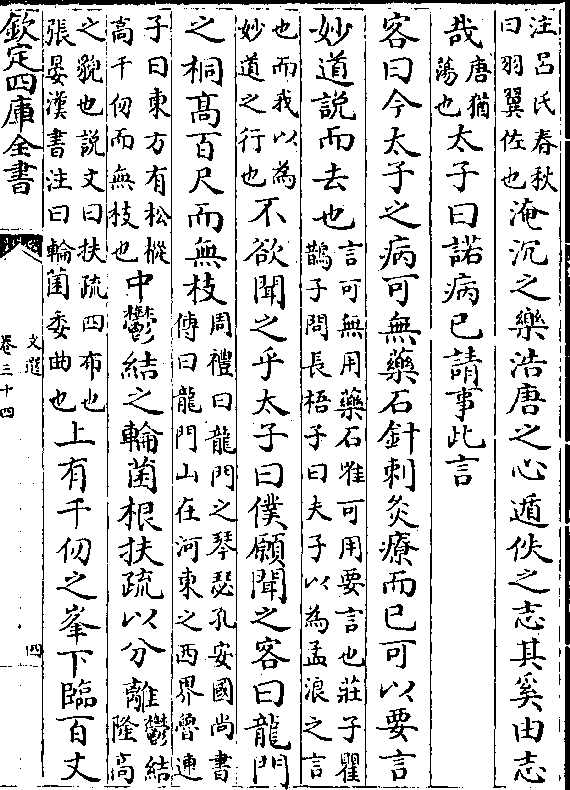 注吕氏春秋曰羽翼佐也淹沉之樂浩唐之心遁佚之志其奚由志
哉唐猶蕩也太子曰諾病已請事此言
客曰今太子之病可無藥石針刺灸療而已可以要言
妙道說而去也言可無用藥石唯可用要言也莊子瞿鵲子問長梧子曰夫子以為孟浪之言
也而我以為妙道之行也不欲聞之乎太子曰僕願聞之客曰龍門
之桐髙百尺而無枝周禮曰龍門之琴瑟孔安國尚書傳曰龍門山在河東之西界魯連
子曰東方有松樅高千仞而無枝也中鬱結之輪菌根扶疏以分離鬱結隆高
之貌也説文曰扶疏四布也張晏漢書注曰輪菌委曲也上有千仞之峯下臨百丈
欽定四庫全書
文選
卷三十四
四